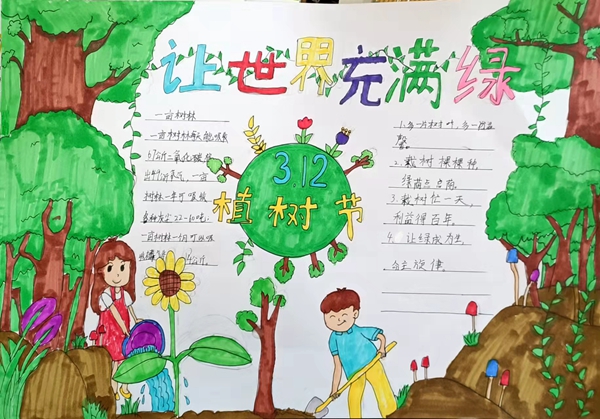 让世界充满绿
3.12
植树节
一亩树林
一亩树林每天能吸
67公斤二氧化碳
出
树林一年可吸收
各种灰尘22-60吨
一亩树林一个月可吸收
1.多一片树叶，多一份温
馨。
2.栽树棵棵种
绿荫点点浓
3.栽树忙一天，
利益得百年。
4.让绿成为生
命主旋律。